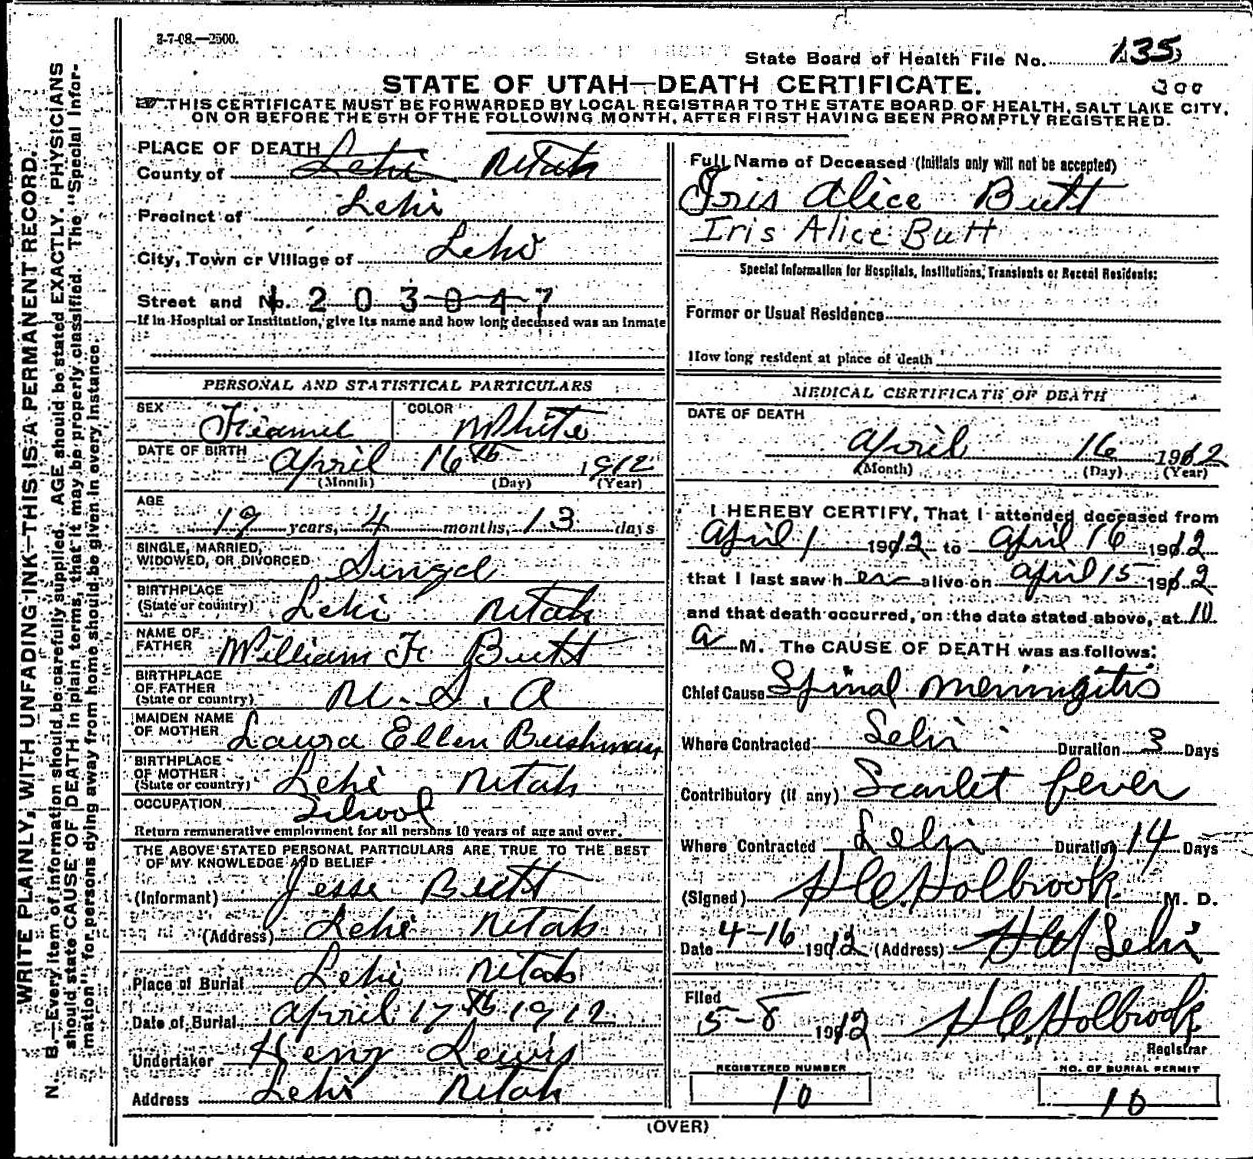 3-7-08.—2500.
State Board of Health File No. 135
300
STATE OF UTAH—DEATH CERTIFICATE.
THIS CERTIFICATE MUST BE FORWARDED BY LOCAL REGISTRAR TO THE STATE BOARD OF HEALTH, SALT LAKE CITY,
ON OR BEFORE THE 5TH OF THE FOLLOWING MONTH, AFTER FIRST HAVING BEEN PROMPTLY REGISTERED.
WRITE PLAINLY, WITH UNFADING INK—THIS IS A PERMANENT RECORD.
N. B.—Every item of information should be carefully supplied. AGE should be stated EXACTLY. PHYSICIANS
should state CAUSE OF DEATH in plain terms, that it may be properly classified. The "Special Infor-
mation" for persons dying away from home should be given in every instance.
PLACE OF DEATH
County of Lehi Utah
Precinct of Lehi
City, Town or Village of Lehi
Street and No. 1203047
If in Hospital or Institution, give its name and how long deceased was an inmate
PERSONAL AND STATISTICAL PARTICULARS
SEX Feamel COLOR White
DATE OF BIRTH April 16th 1912
(Month) (Day) (Year)
AGE
19 years, 4 months, 13 days
SINGLE, MARRIED,
WIDOWED, OR DIVORCED Singel
BIRTHPLACE
(State or country) Lehi Utah
NAME OF
FATHER William F. Butt
BIRTHPLACE
OF FATHER
(State or country) U. S. A
MAIDEN NAME
OF MOTHER Laura Ellen Bushman
BIRTHPLACE
OF MOTHER
(State or country) Lehi Utah
OCCUPATION School
Return remunerative employment for all persons 10 years of age and over.
THE ABOVE STATED PERSONAL PARTICULARS ARE TRUE TO THE BEST
OF MY KNOWLEDGE AND BELIEF
(Informant) Jesse Butt
(Address) Lehi Utah
Place of Burial Lehi Utah
Date of Burial April 17th 1912
Undertaker Henry Lewis
Address Lehi Utah
Full Name of Deceased (Initials only will not be accepted)
Iris Alice Butt
Iris Alice Butt
Special Information for Hospitals, Institutions, Transients or Recent Residents:
Former or Usual Residence
How long resident at place of death
MEDICAL CERTIFICATE OF DEATH
DATE OF DEATH
April 16 1912
(Month) (Day) (Year)
I HEREBY CERTIFY, That I attended deceased from
April 1 1912 to April 16 1912
that I last saw her alive on April 15 1912
and that death occurred, on the date stated above, at 10
a M. The CAUSE OF DEATH was as follows:
Chief Cause Spinal meningitis
Where Contracted Lehi Duration 3 Days
Contributory (if any) Scarlet fever
Where Contracted Lehi Duration 14 Days
(Signed) H C Holbrook M. D.
Date 4-16 1912 (Address) Lehi
Filed
5-8 1912 H C Holbrook
Registrar
REGISTERED NUMBER
10
NO. OF BURIAL PERMIT
10
(OVER)